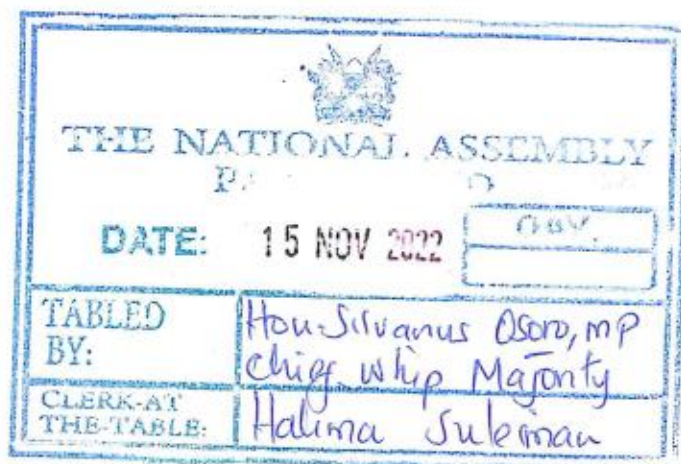 THE NATIONAL ASSEMBLY
DATE: 15 NOV 2022
TABLED BY:
Hon. Silvanus Osoro, MP
Chief Whip Majority
CLERK-AT THE-TABLE:
Halima Suleiman